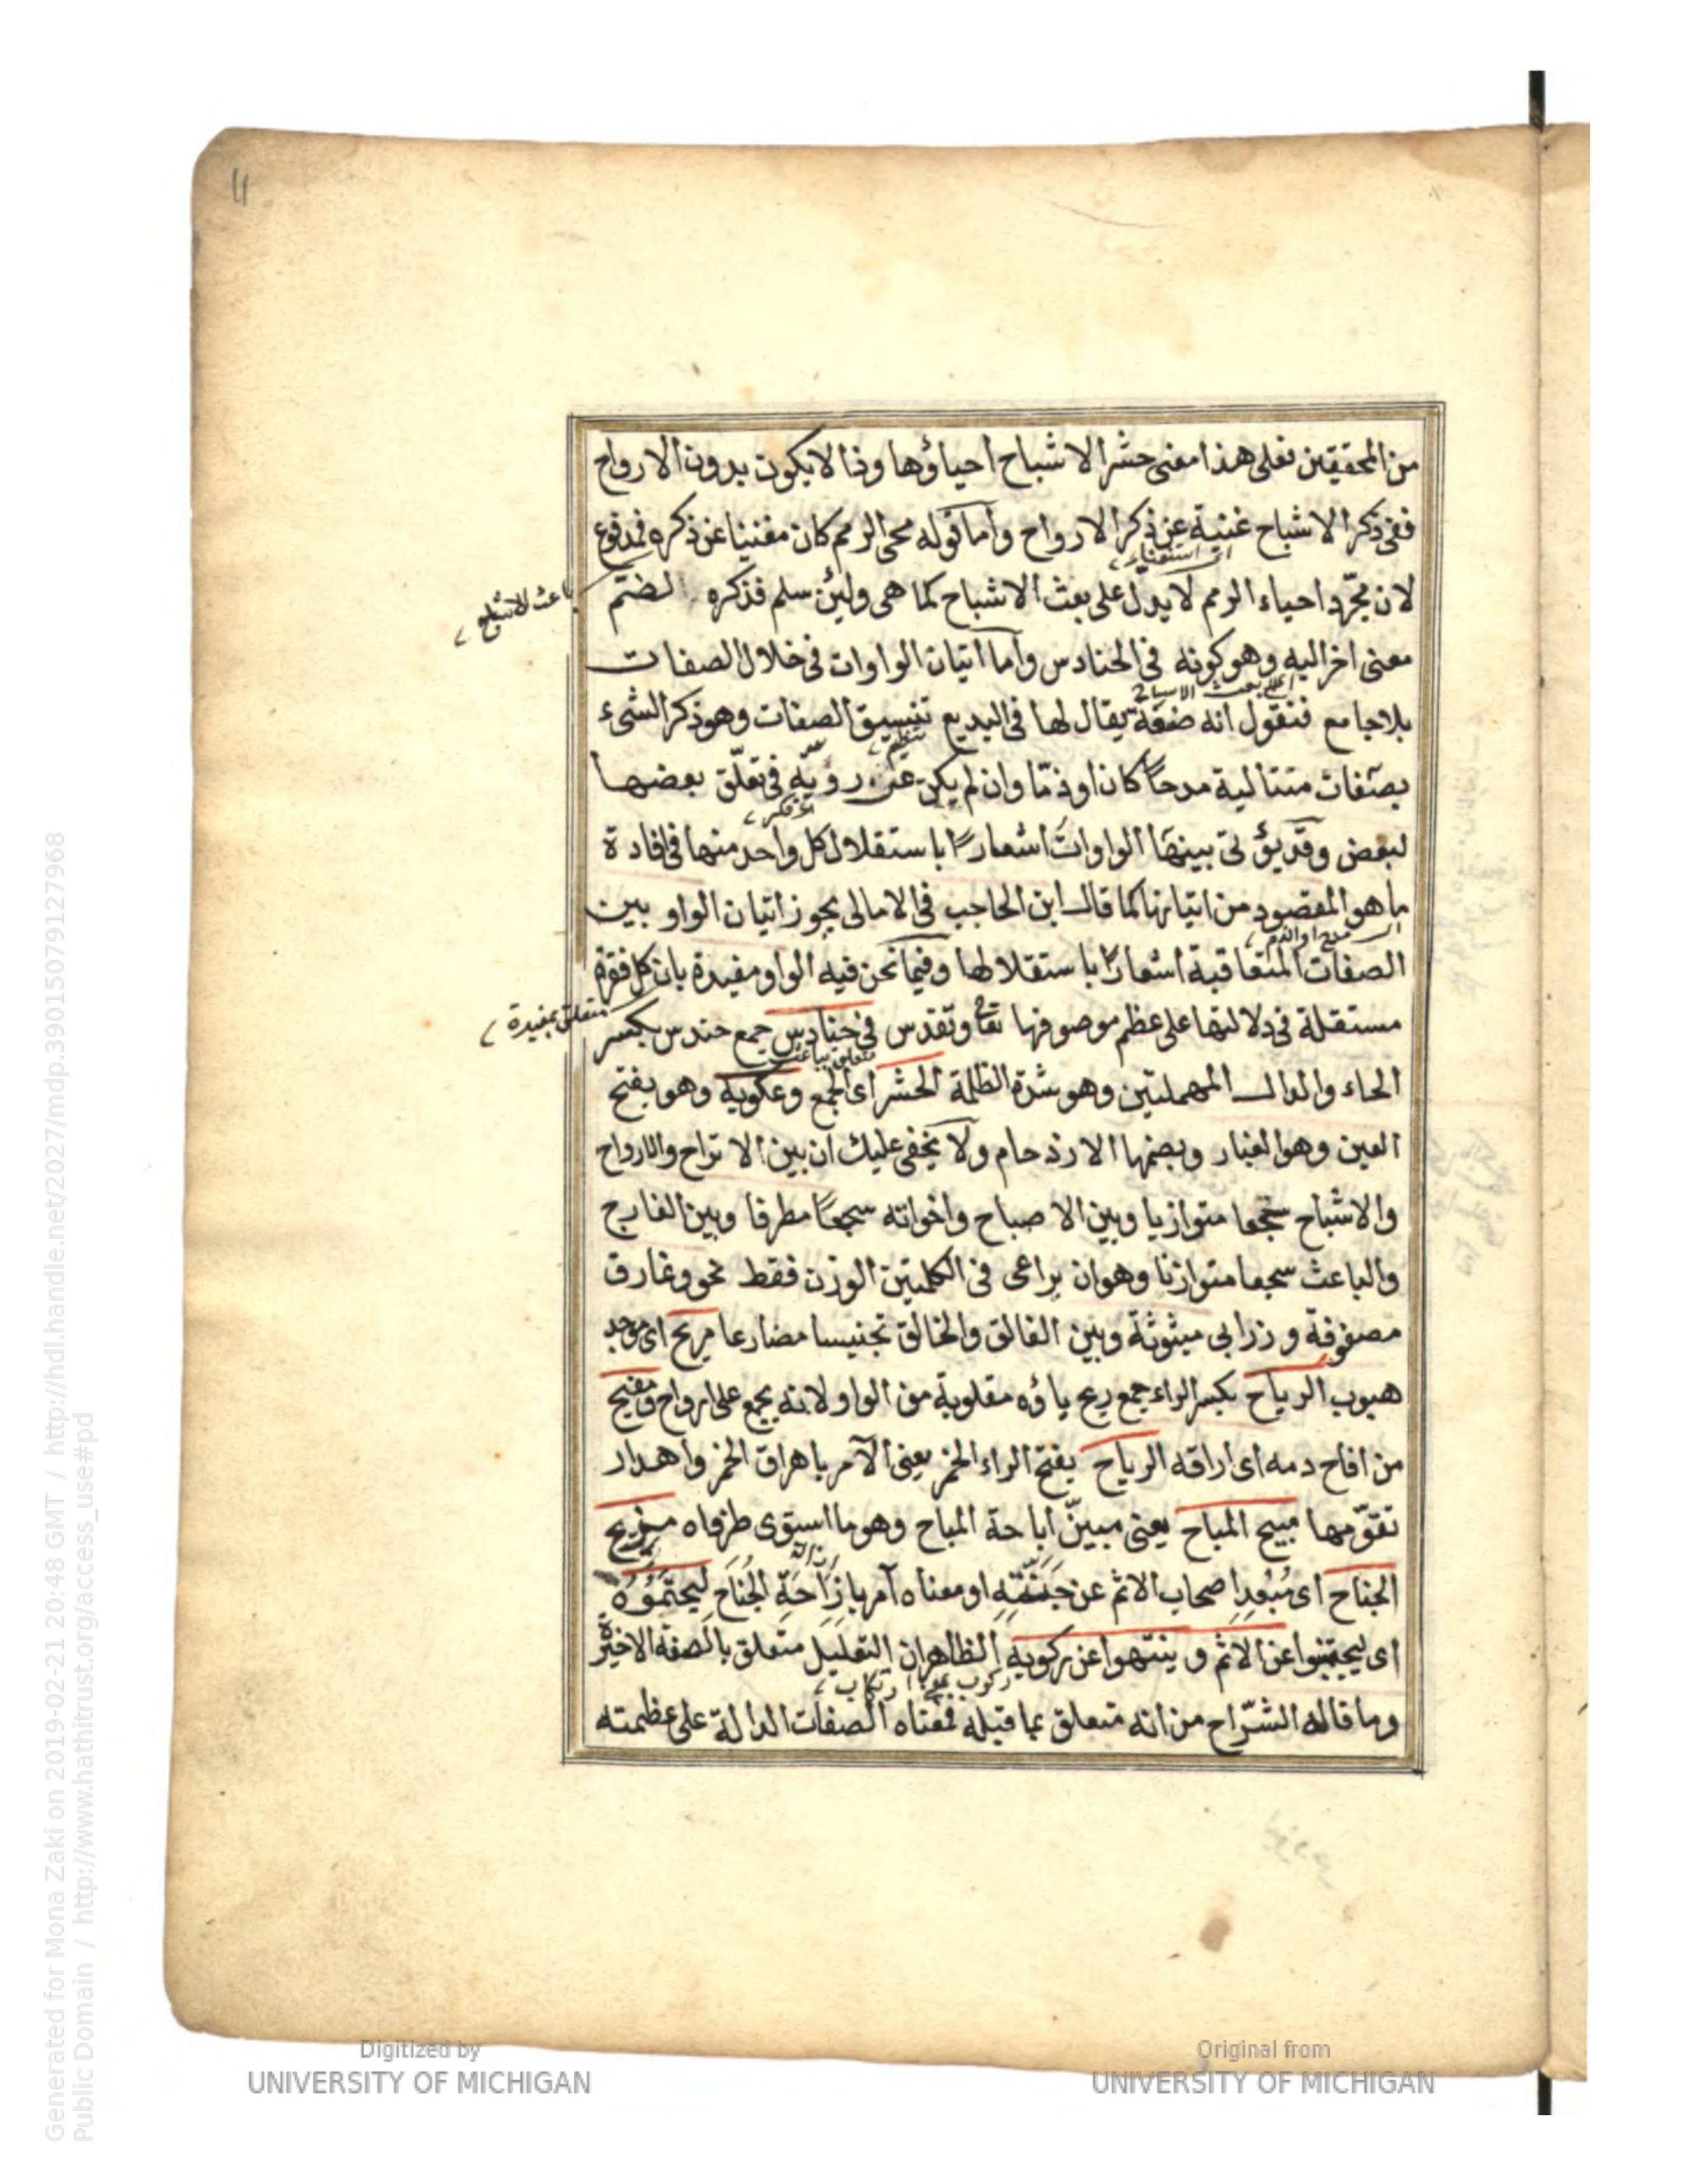 11
من المحققين فعلى هذا معنى حشر الاشباح احياؤها وذا لا يكون بدون الارواح
ففى ذكر الاشباح غنية عن ذكر الارواح واما قوله محى الرمم كان مغنيا عن ذكره فمدفوع
اى استغناء
لان مجرّد احياء الرمم لا يدل على بعث الاشباح كما هى ولئن سلم فذكره لضمّ
باعث الاشباح
معنى اخر اليه وهو كونه فى الحنادس واما اتيان الواوات فى خلال الصفات
اى بعث الاشباح
بلا جامع فنقول انه صنعة يقال لها فى البديع تنسيق الصفات وهو ذكر الشىء
بصفات متتالية مدحًا كان او ذمّا وان لم يكن عن رويّة فى تعلّق بعضها
فكر
لبعض وقد يؤتى بينها الواوات اشعارًا باستقلال كل واحد منها فى افادة
ما هو المقصود من اتيانها كما قال ابن الحاجب فى الامالى يجوز اتيان الواو بين
مدح او الذم
الصفات المتعاقبة اشعارًا باستقلالها وفيما نحن فيه الواو مفيدة بان كل فقرة
متعلق بمفيدة
مستقلة فى دلالتها على عظم موصوفها تعالى وتقدس فى حنادس جمع حندس بكسر
متعلق بباعث
الحاء والدال المهملتين وهو شدة الظلمة الحشر اى الجمع وعكوبه وهو بفتح
العين وهو الغبار وبضمها الازدحام ولا يخفى عليك ان بين الاتراح والارواح
والاشباح سجعا متوازيا وبين الاصباح واخواته سجعًا مطرفا وبين الفارج
والباعث سجعا متوازنا وهو ان يراعى فى الكلمتين الوزن فقط نحو ونمارق
مصفوفة وزرابى مبثوثة وبين الفالق والخالق تجنيسا مضارعا مريح اى موجد
هبوب الرياح بكسر الراء جمع ريح ياؤه مقلوبة من الواو لانه يجمع على ارواح ومفيح
من افاح دمه اى اراقه الرياح بفتح الراء الخمر يعنى الآمر باهراق الخمر واهدار
تقوّمها مبيح المباح يعنى مبينّ اباحة المباح وهو ما استوى طرفاه مزيح
الجناح اى مُبْعِد اصحاب الاثم عن جَنَّتِه او معناه آمر باِزَاحَةِ الجُنَاح ليجتمؤه
اى ليجتنبوا عن الاثم وينتهوا عن ركوبه الظاهر ان التعليل متعلق بالصفة الاخيرة
ركوب بمعنى ارتكاب
وما قاله الشرّاح من انه متعلق بما قبله فمعناه الصفات الدالة على عظمته
Digitized by
UNIVERSITY OF MICHIGAN
Original from
UNIVERSITY OF MICHIGAN
Generated for Mona Zaki on 2019-02-21 20:48 GMT / http://hdl.handle.net/2027/mdp.39015079127968
Public Domain / http://www.hathitrust.org/access_use#pd